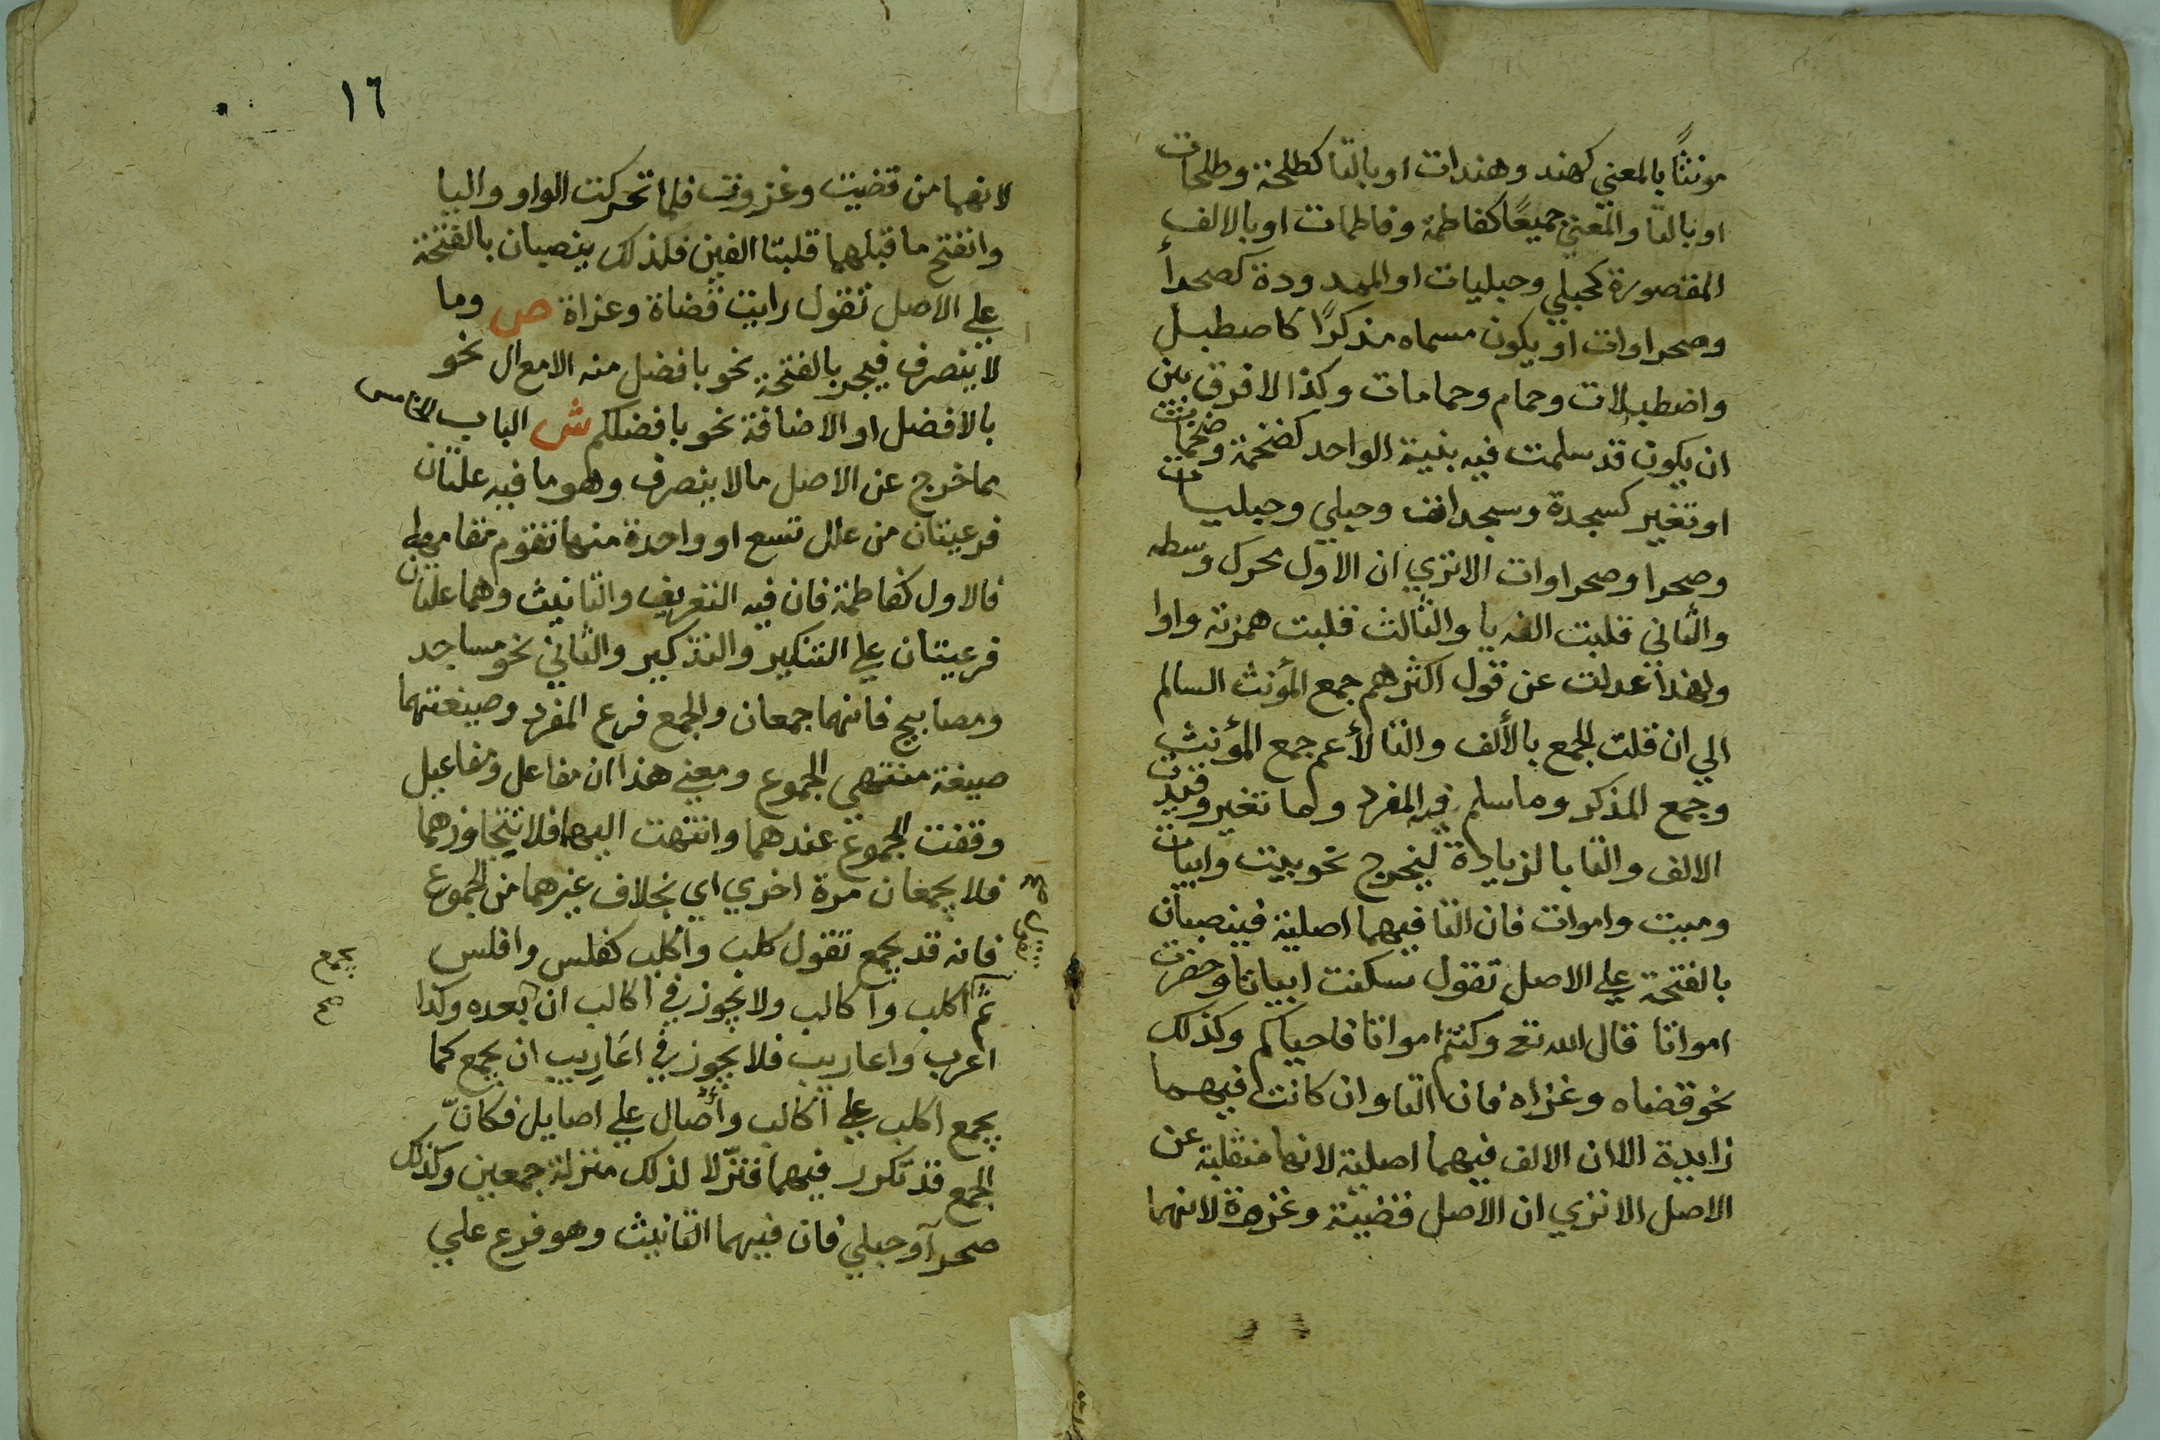 مونثاً بالمعني كهند وهندات او بالتا كطلحة وطلحات
او بالتا والمعني جميعًا كفاطمة وفاطمات او بالالف
المقصورة كحبلي وحبليات او الممدودة كصحرأ
وصحراوات او يكون مسماه مذكرًا كاصطبل
واصطبلات وحمام وحمامات وكذا لا فرق بين
ان يكون قد سلمت فيه بنية الواحد كضخمة وضخمات
او تغير كسجدة وسجدات وحبلي وحبليات
وصحرا وصحراوات الا تري ان الاول محرك وسطه
والثاني قلبت الفه يا والثالث قلبت همزته واوا
ولهذا عدلت عن قول اكثرهم جمع المؤنث السالم
الي ان قلت الجمع بالألف والتا لأعم جمع المؤنث
وجمع المذكر وما سلم فيه المفرد وما تغير وقيدت
الالف والتا بالزيادة ليخرج نحو بيت وابيات
وميت واموات فان التا فيهما اصلية فينصبان
بالفتحة علي الاصل تقول سكنت ابياتا وحضرت
امواتا قال الله تع وكنتم امواتا فاحياكم وكذلك
نحو قضاه وغزاه فان التا وان كانت فيهما
زايدة الا ان الالف فيهما اصلية لانها منقلبة عن
الاصل الا تري ان الاصل قضية وغزوة لانهما
١٦
لانهما من قضيت وغزوت فلما تحركت الواو واليا
وانفتح ما قبلهما قلبتا الفين فلذلك ينصبان بالفتحة
علي الاصل تقول رايت قضاة وغزاة ص وما
لا ينصرف فيجر بالفتحة نحو بافضل منه الا مع ال نحو
بالافضل او الاضافة نحو بافضلكم ش الباب الخامس
مما خرج عن الاصل ما لا ينصرف وهو ما فيه علتان
فرعيتان من علل تسع او واحدة منها تقوم مقامهما
فالاول كفاطمة فان فيه التعريف والتانيث وهما علتان
فرعيتان علي التنكير والتذكير والثاني نحو مساجد
ومصابيح فانهما جمعان والجمع فرع المفرد وصيغتهما
صيغة منتهي الجموع ومعني هذا ان مفاعل ومفاعيل
وقفت الجموع عندهما وانتهت اليهما فلا تتجاوزهما
فلا يجمعان مرة اخري اي بخلاف غيرهما من الجموع
فانه قد يجمع تقول كلب واكلب كفلس وافلس
ثم اكلب واكالب ولا يجوز في اكالب ان بعده وكذا
يجمع
صح
اعرب واعاريب فلا يجوز في اعاريب ان يجمع كما
يجمع اكلب علي اكالب وأصال علي اصايل فكانّ
الجمع قد تكرر فيهما فنزّلا لذلك منزلة جمعين وكذلك
صحرآ وحبلي فان فيهما التانيث وهو فرع علي